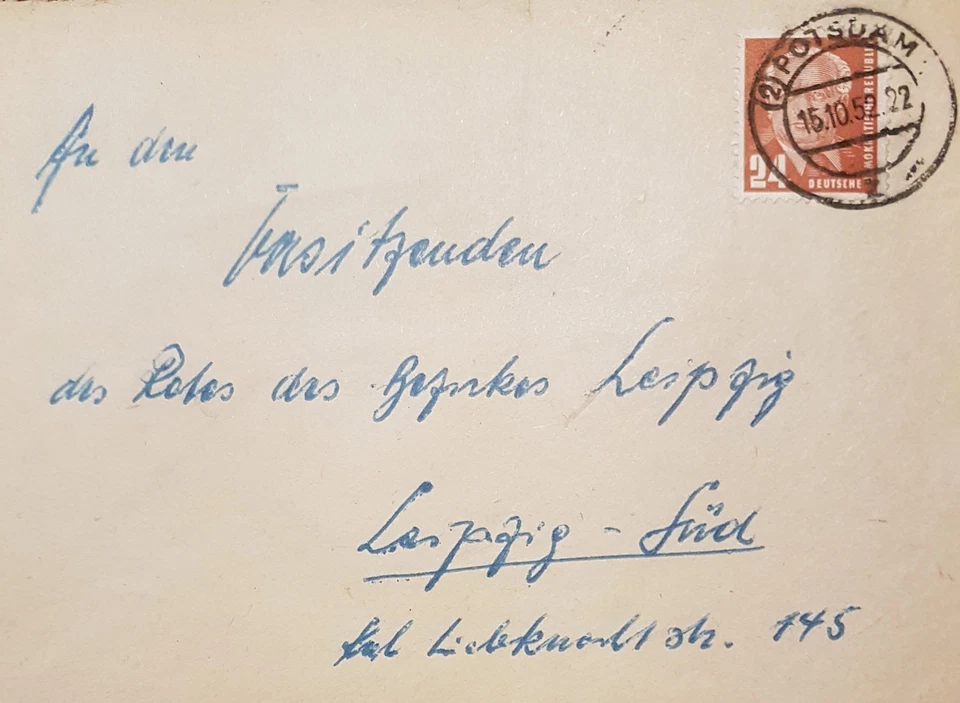 (2) POTSDAM
15.10.52.22
24 DEUTSCHE DEMOKRATISCHE REPUBLIK
An den
Vorsitzenden
des Rates des Bezirkes Leipzig
Leipzig - Süd
Karl Liebknecht str. 145